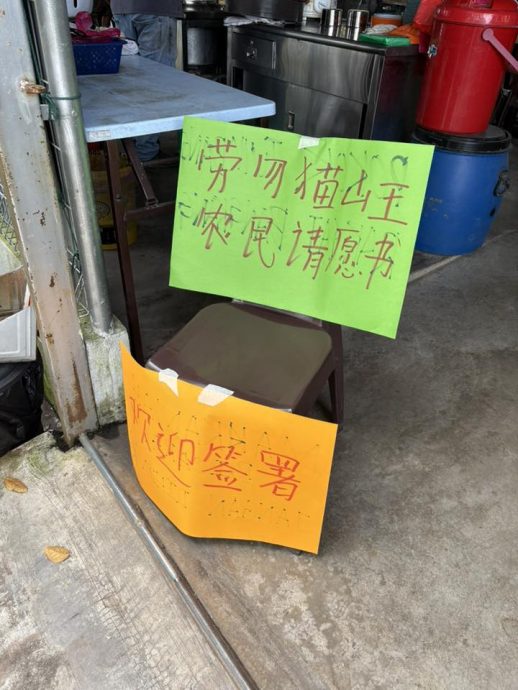 劳勿猫山王
农民请愿书
欢迎签署